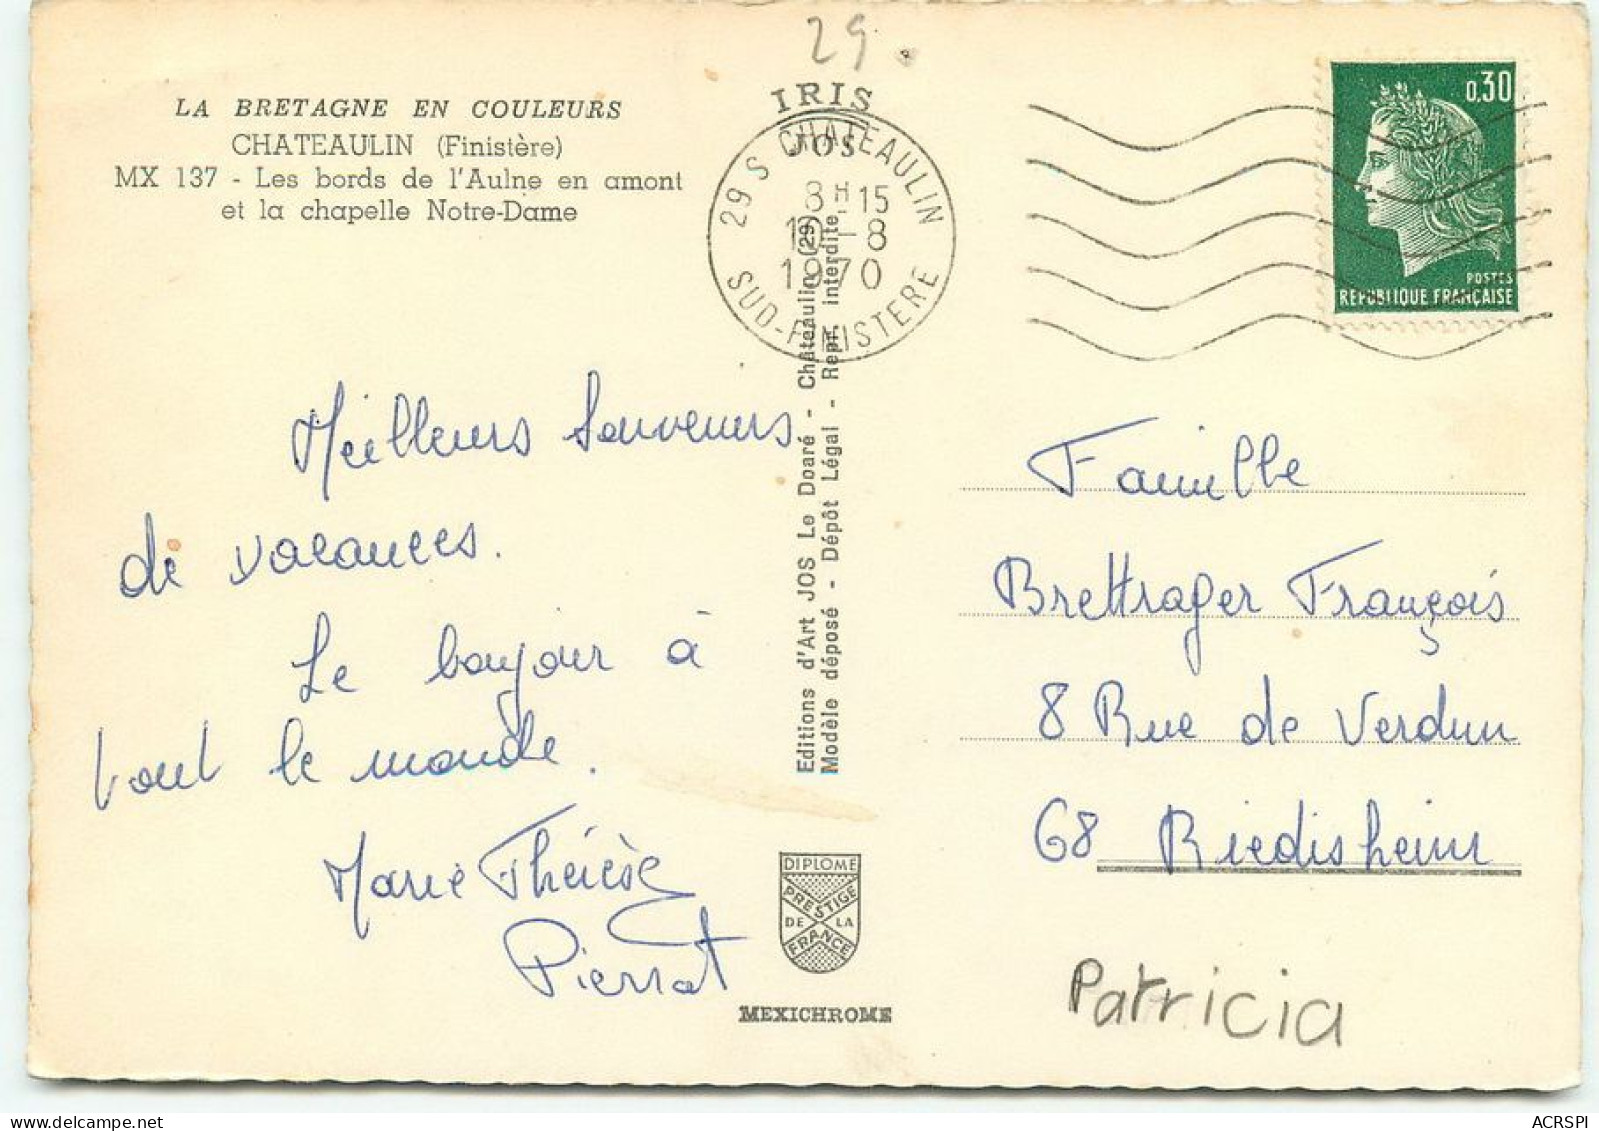 29
LA BRETAGNE EN COULEURS
CHATEAULIN (Finistère)
MX 137 - Les bords de l'Aulne en amont
et la chapelle Notre-Dame
IRIS
JOS
29 S CHATEAULIN
8H15
10-8
1970
SUD-FINISTERE
0,30
POSTES
REPUBLIQUE FRANÇAISE
Meilleurs Souvenirs
de vacances.
Le bonjour à
tout le monde.
Marie Thérèse
Pierrat
Editions d'Art JOS Le Doaré - Châteaulin (29)
Modèle déposé - Dépôt Légal - Repr. interdite
Famille
Brettrager François
8 Rue de Verdun
68 Riedisheim
DIPLOME
PRESTIGE
DE LA
FRANCE
MEXICHROME
Patricia
ACRSPI